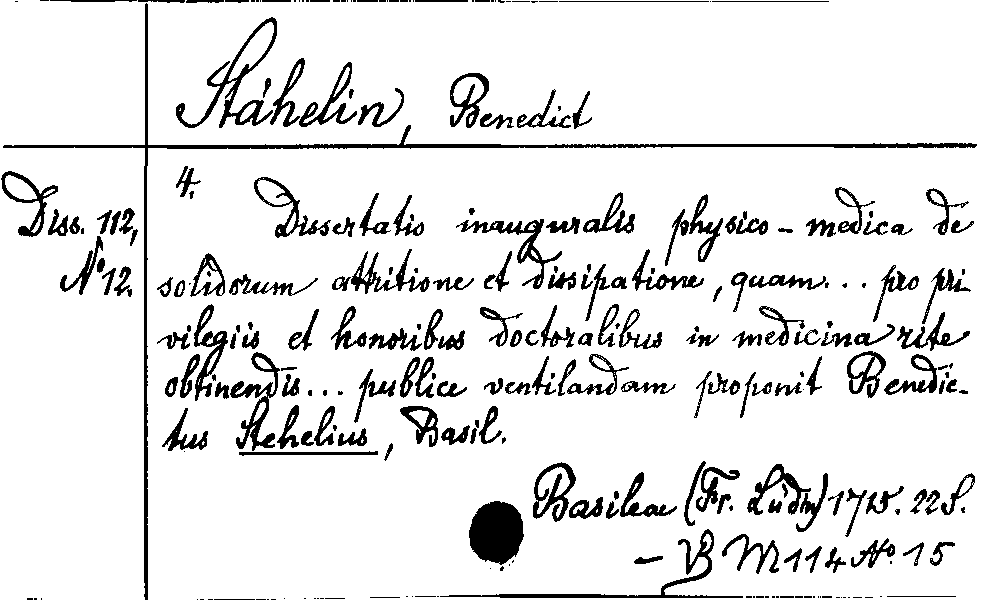 Stähelin, Benedict
Diss. 112,
No 12.
4.
Dissertatio inauguralis physico-medica de
solidorum attritione et dissipatione, quam... pro pri
vilegiis et honoribus doctoralibus in medicina rite
obtinendis... publice ventilandam proponit Benedic-
tus Stehelius, Basil.
Basileae (Fr. Lüdin) 1715. 22 S.
- VB M 114 No. 15